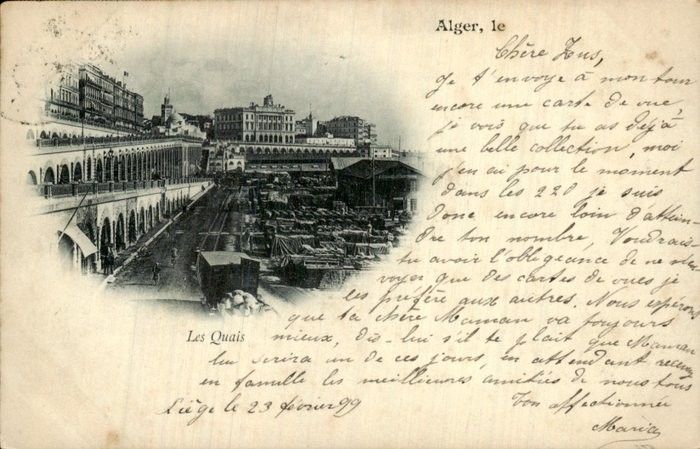 Alger, le
Chère Zus,
Je t'envoye à mon tour
encore une carte de vue,
je vois que tu as déjà
une belle collection, moi
j'en ai pour le moment
dans les 220 je suis
donc encore loin d'attein-
dre ton nombre, Voudrais-
tu avoir l'obligeance de ne m'en
voyer que des cartes de vues je
les préfère aux autres. Nous espérons
que ta chère Maman va toujours
mieux, dis-lui s'il te plait que Maman
lui écrira un de ces jours, en attendant recevez
en famille les meilleures amitiés de nous tous
Ton affectionnée
Maria
Liége le 23 février 99
Les Quais